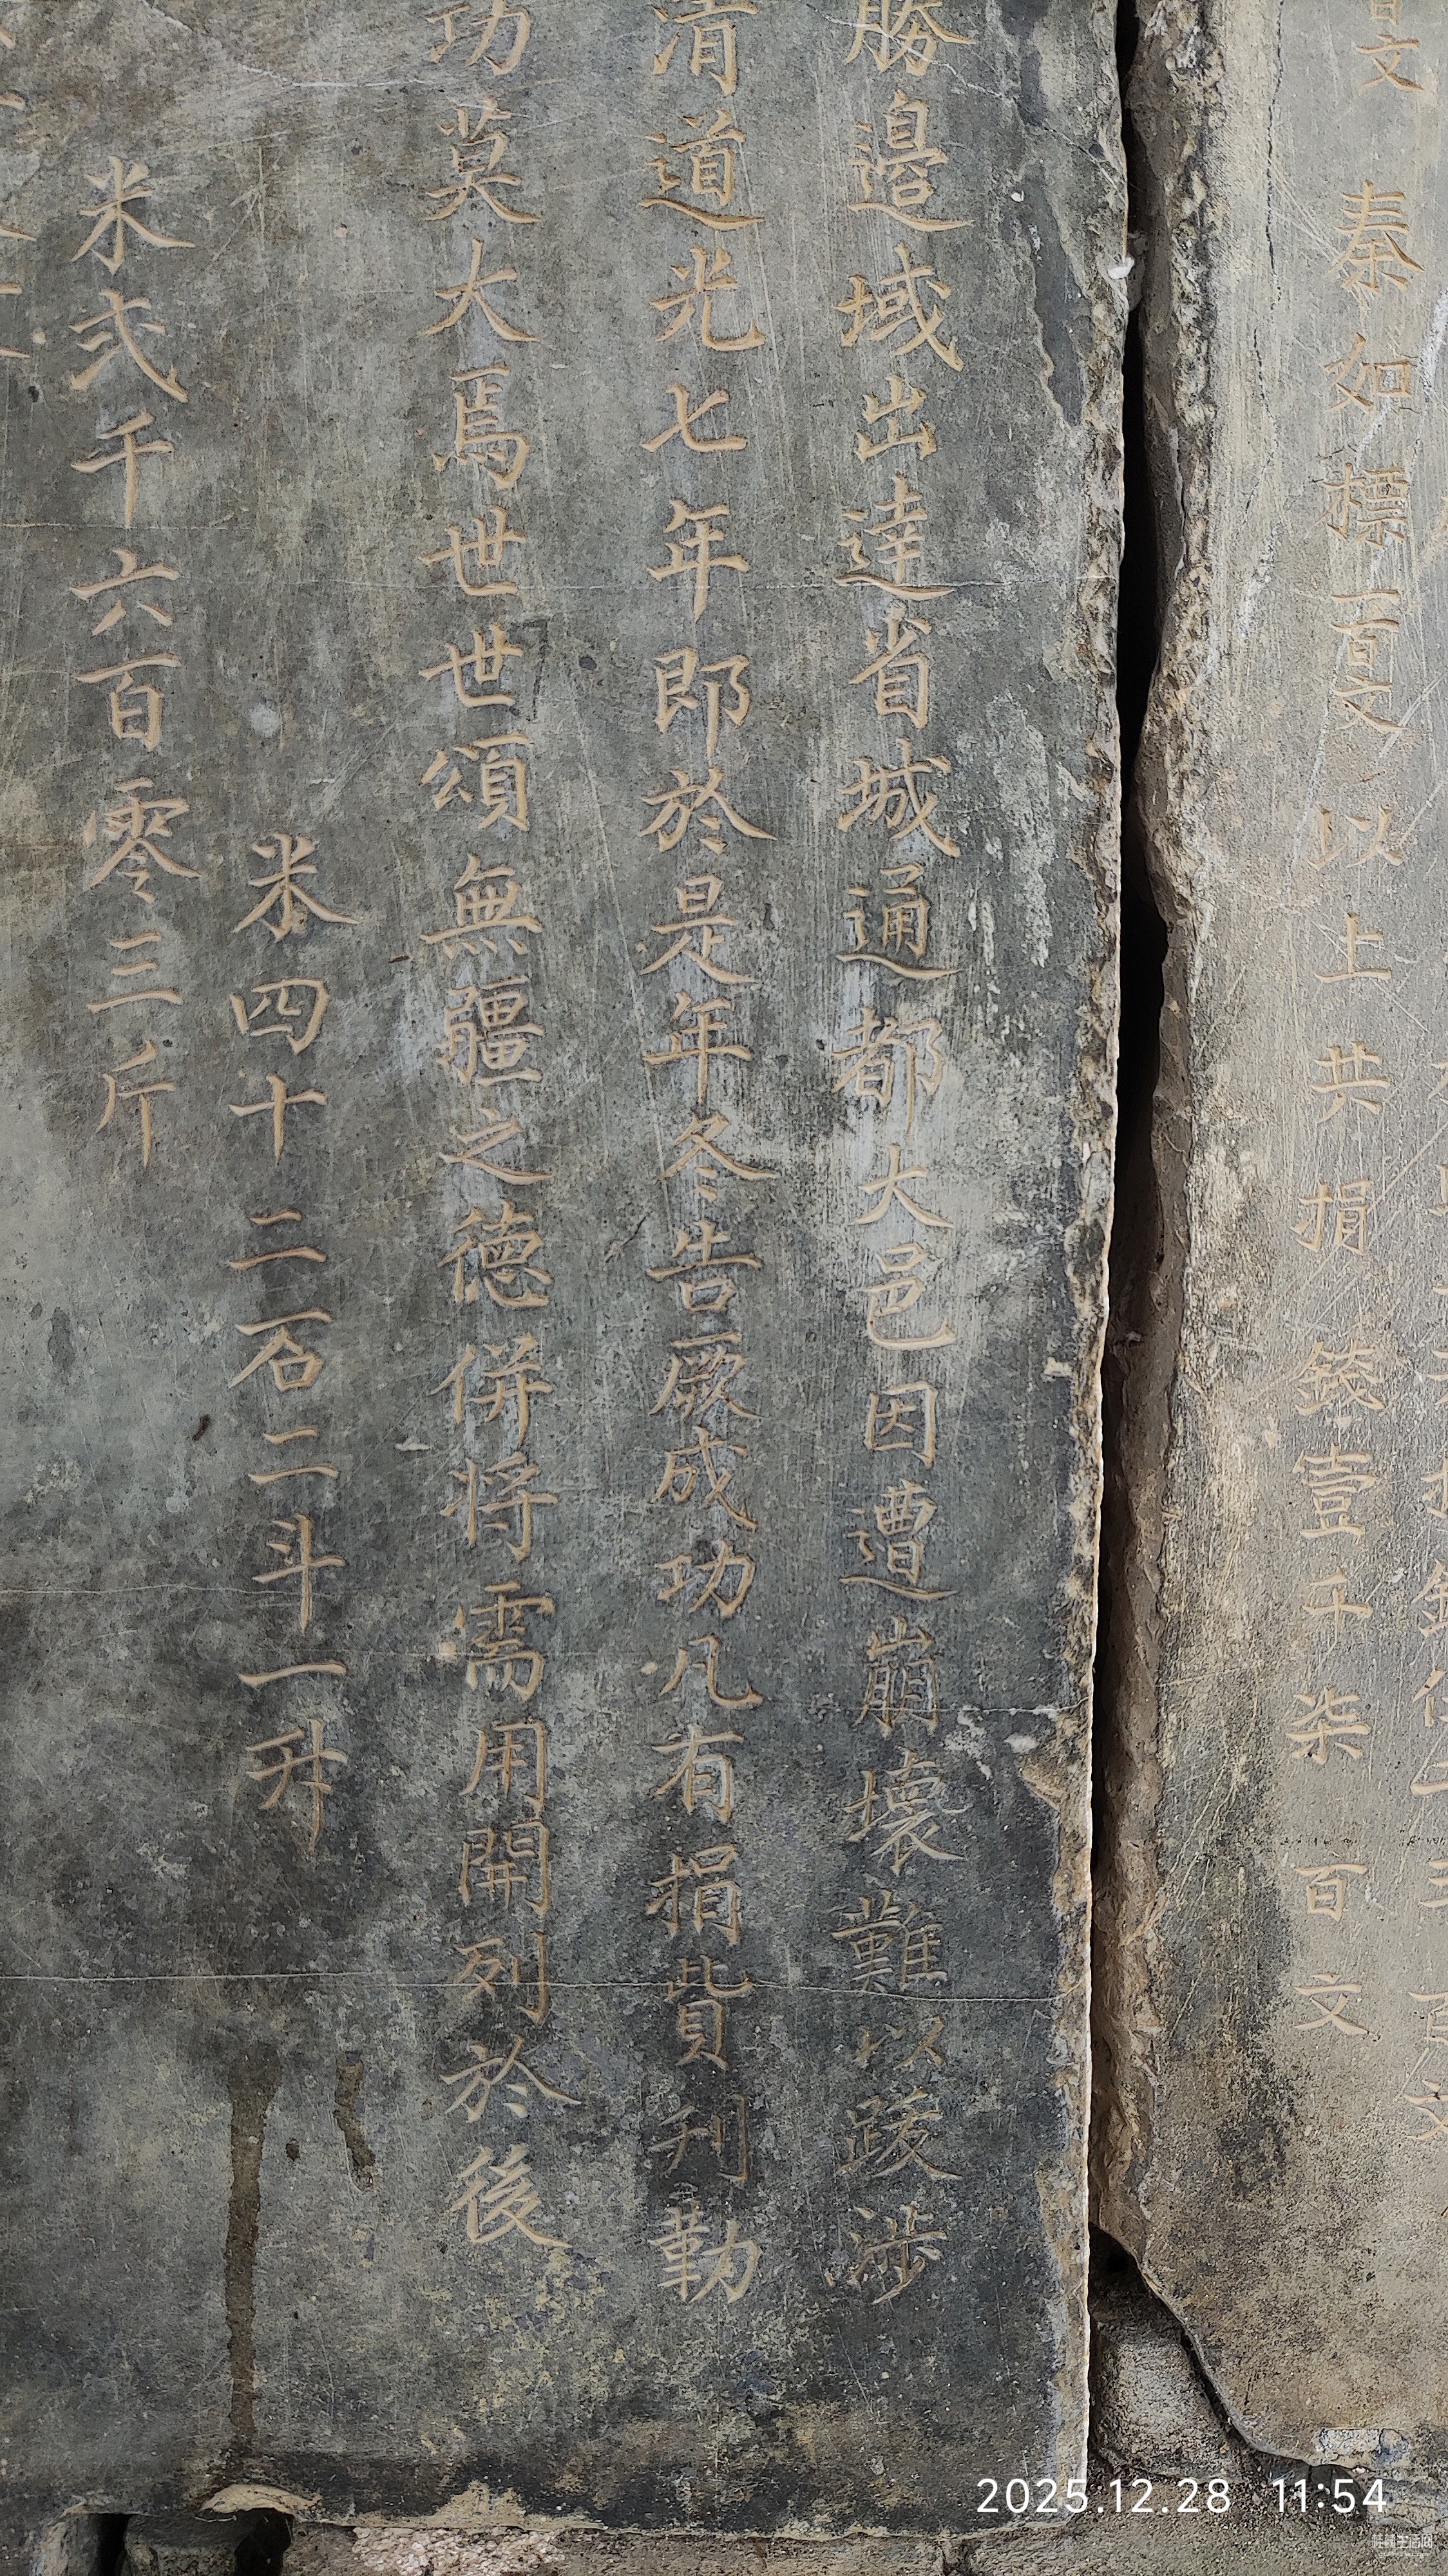 文 秦如標一百文以上共捐錢壹千柒百文
勝邉域出逹省城通都大邑因遭崩壞難以跋涉
清道光七年即於是年冬告厥成功凡有捐貲刊勒
功莫大焉世世頌無疆之德併将需用開列於後
米四十二石二斗一升
米弍千六百零三斤
2025.12.28 11:54